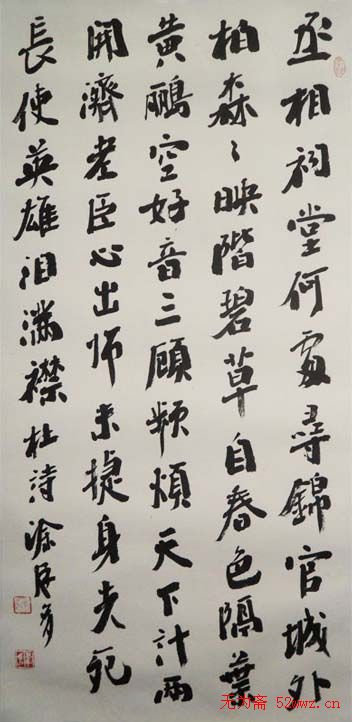 丞相祠堂何處尋錦官城外
柏森〻映階碧草自春色隔葉
黃鸝空好音三顧頻煩天下計兩
開濟老臣心出師未捷身先死
長使英雄泪滿襟杜詩
无为斋 52wwz.cn